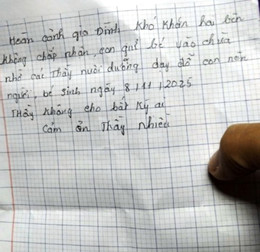 Hoàn cảnh gia Đình khó khăn hai bên
không chấp nhận, con quí bé vào chùa
nhờ các Thầy nuôi dưỡng dạy dỗ con nên
người, bé sinh ngày 8/11/2025
Thầy không cho bất kỳ ai
Cảm ơn Thầy nhiều